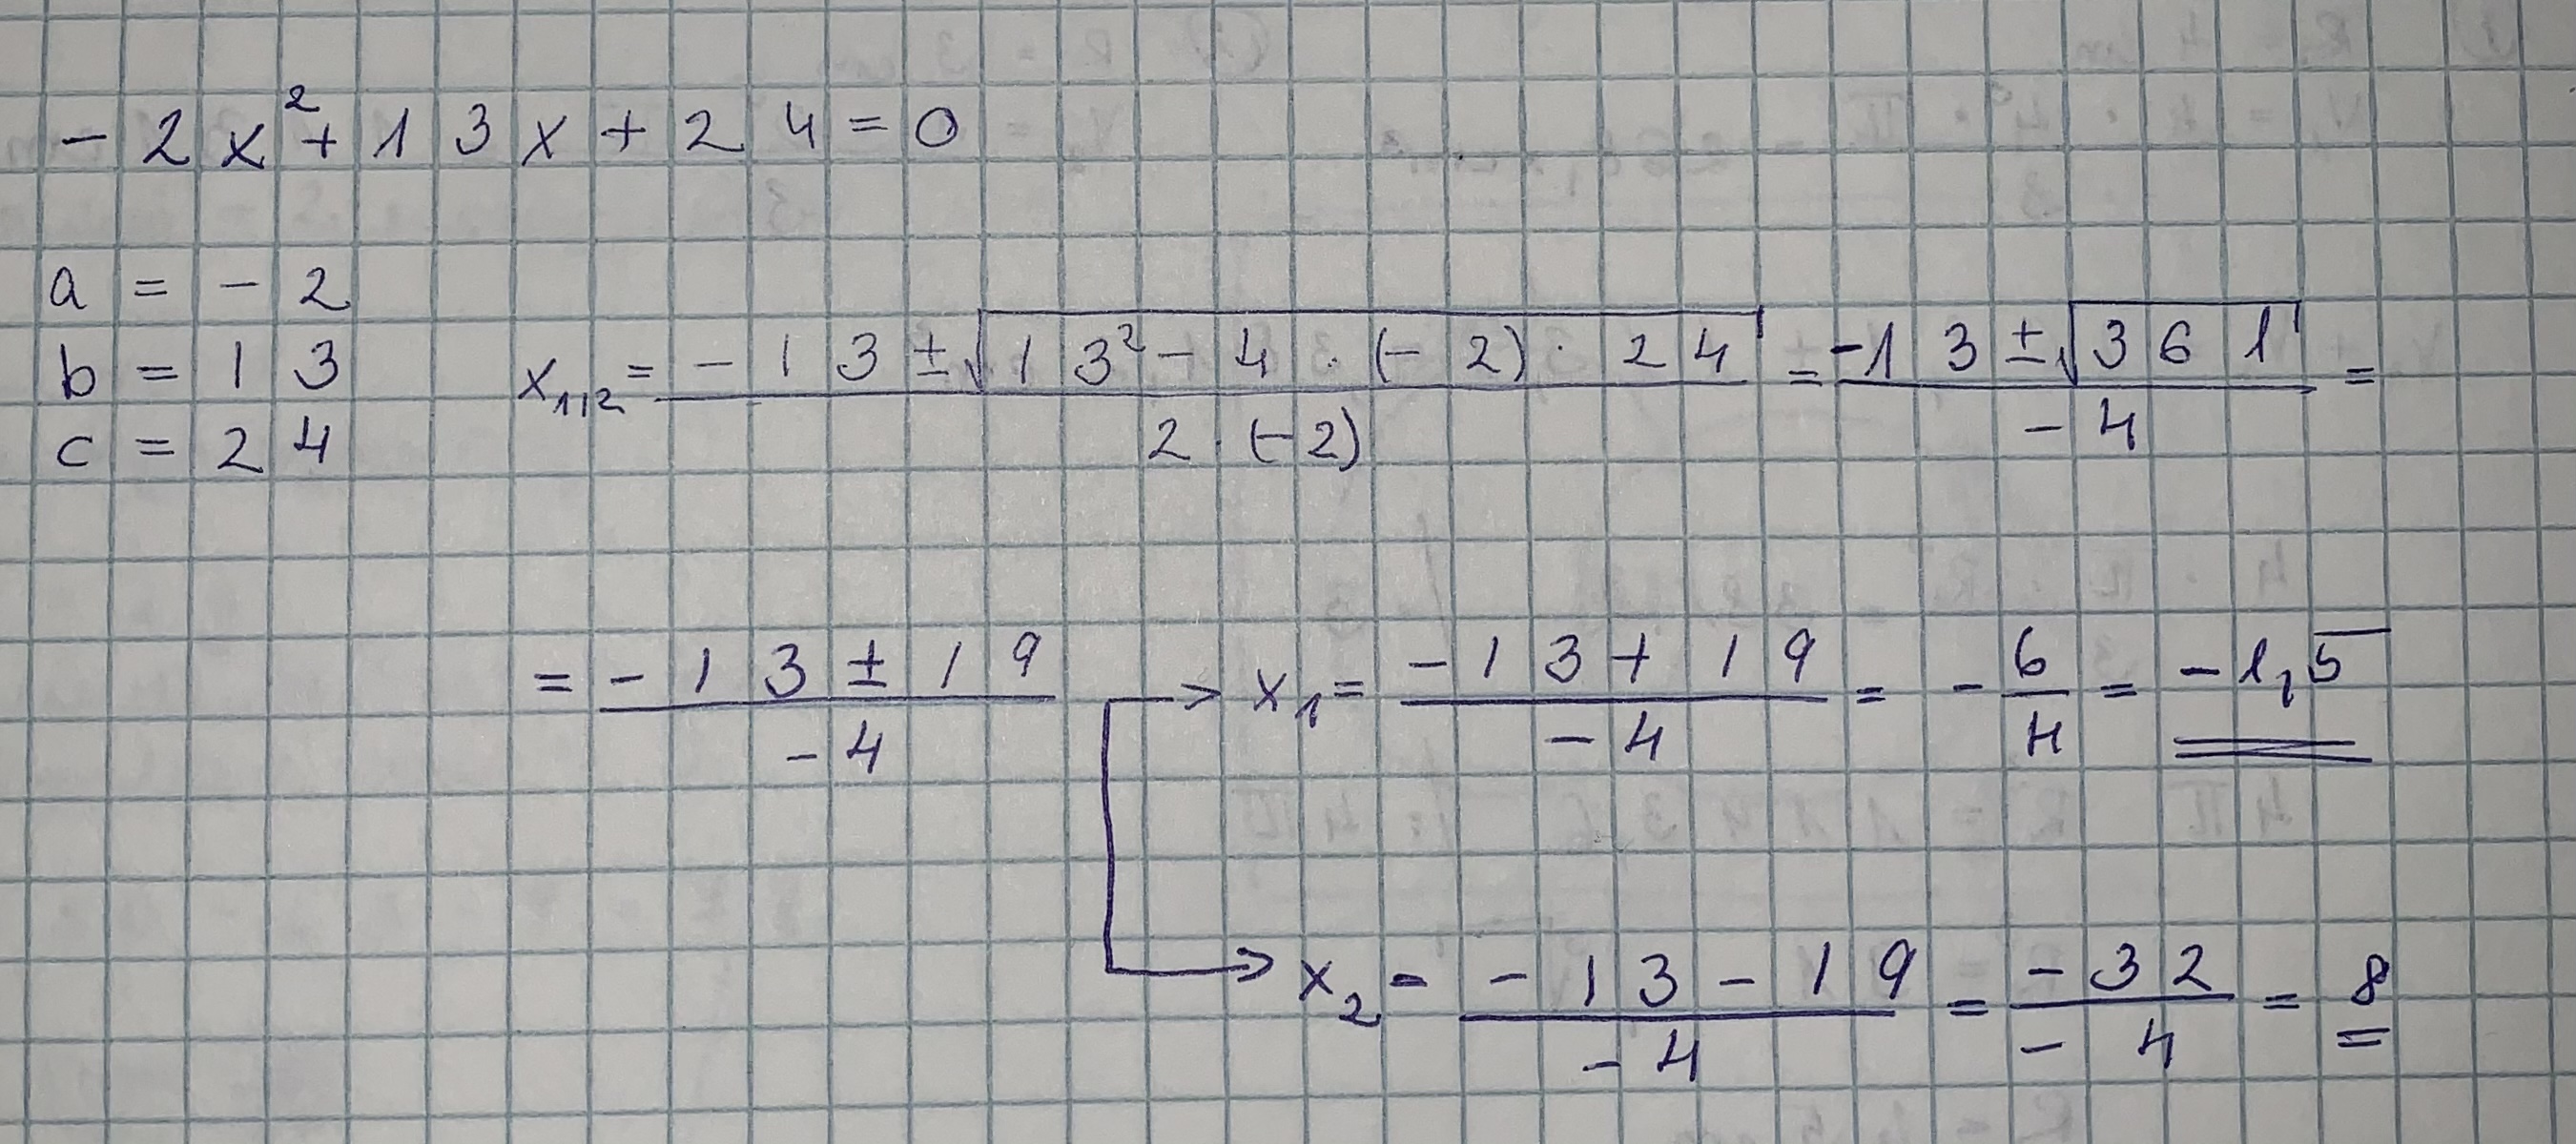 -2x²+13x+24=0
a = -2
b = 13
c = 24
x₁,₂ = (-13 ± √(13² - 4 · (-2) · 24)) / (2 · (-2)) = (-13 ± √361) / (-4) =
= (-13 ± 19) / (-4) → x₁ = (-13 + 19) / (-4) = -6/4 = -1,5
→ x₂ = (-13 - 19) / (-4) = (-32) / (-4) = 8